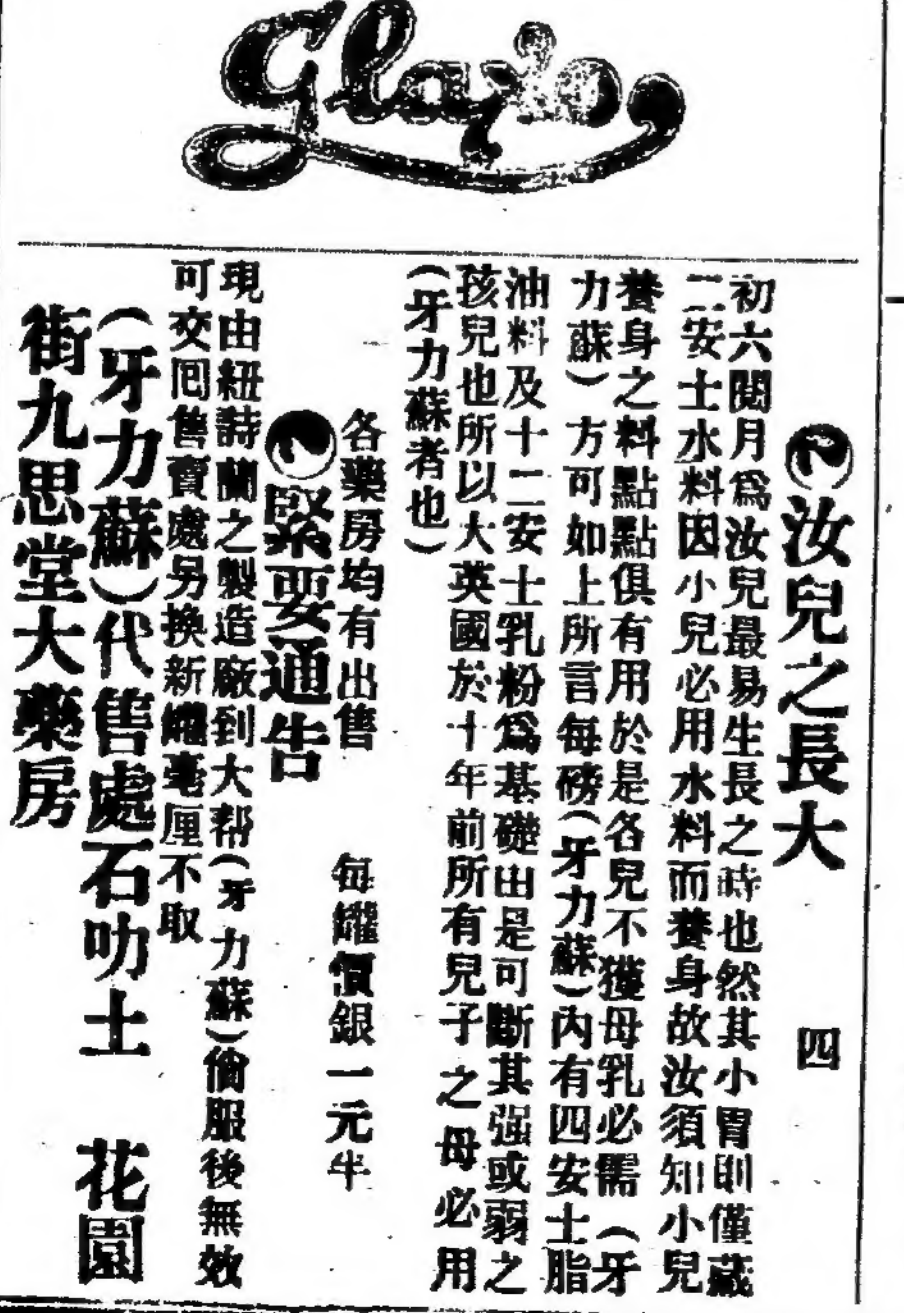 Glaxo
汝兒之長大　四
初六閱月爲汝兒最易生長之時也然其小胃則僅藏
二安士水料因小兒必用水料而養身故汝須知小兒
養身之料點點俱有用於是各兒不獲母乳必需（牙
力蘇）方可如上所言每磅（牙力蘇）內有四安士脂
油料及十二安士乳粉爲基礎由是可斷其强或弱之
孩兒也所以大英國於十年前所有兒子之母必用
（牙力蘇者也）
各藥房均有出售　每罐價銀一元半
緊要通告
現由紐詩蘭之製造廠到大帮（牙力蘇）倘服後無效
可交囘售賣處另換新罐毫厘不取
（牙力蘇）代售處石叻土　花園
街九思堂大藥房